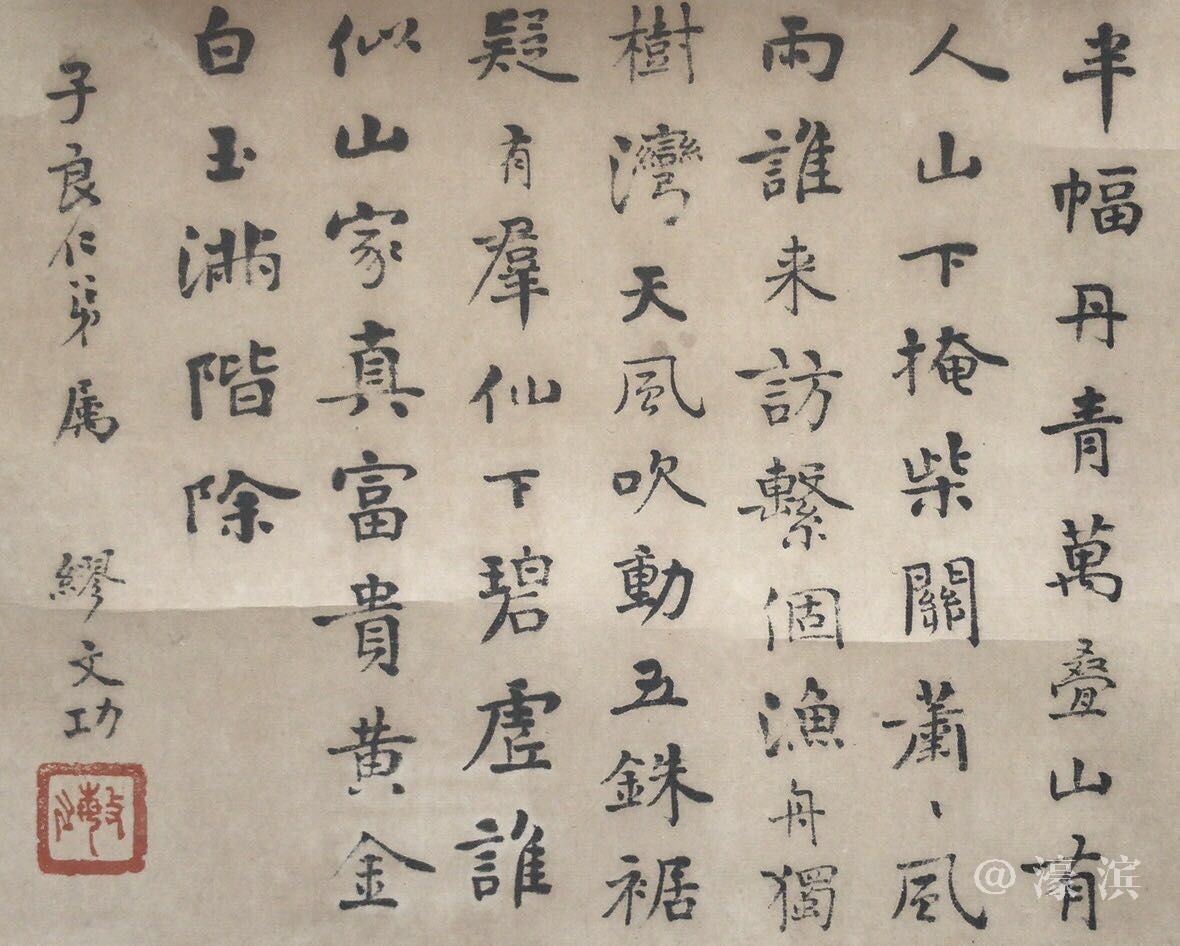 半幅丹青萬叠山有
人山下掩柴關蕭丶風
雨誰来訪繫個漁舟獨
樹灣天風吹動五銖裾
疑有羣仙下碧虛誰
似山家真富貴黄金
白玉滿階除
子良仁弟属 繆文功
敏
@濠滨